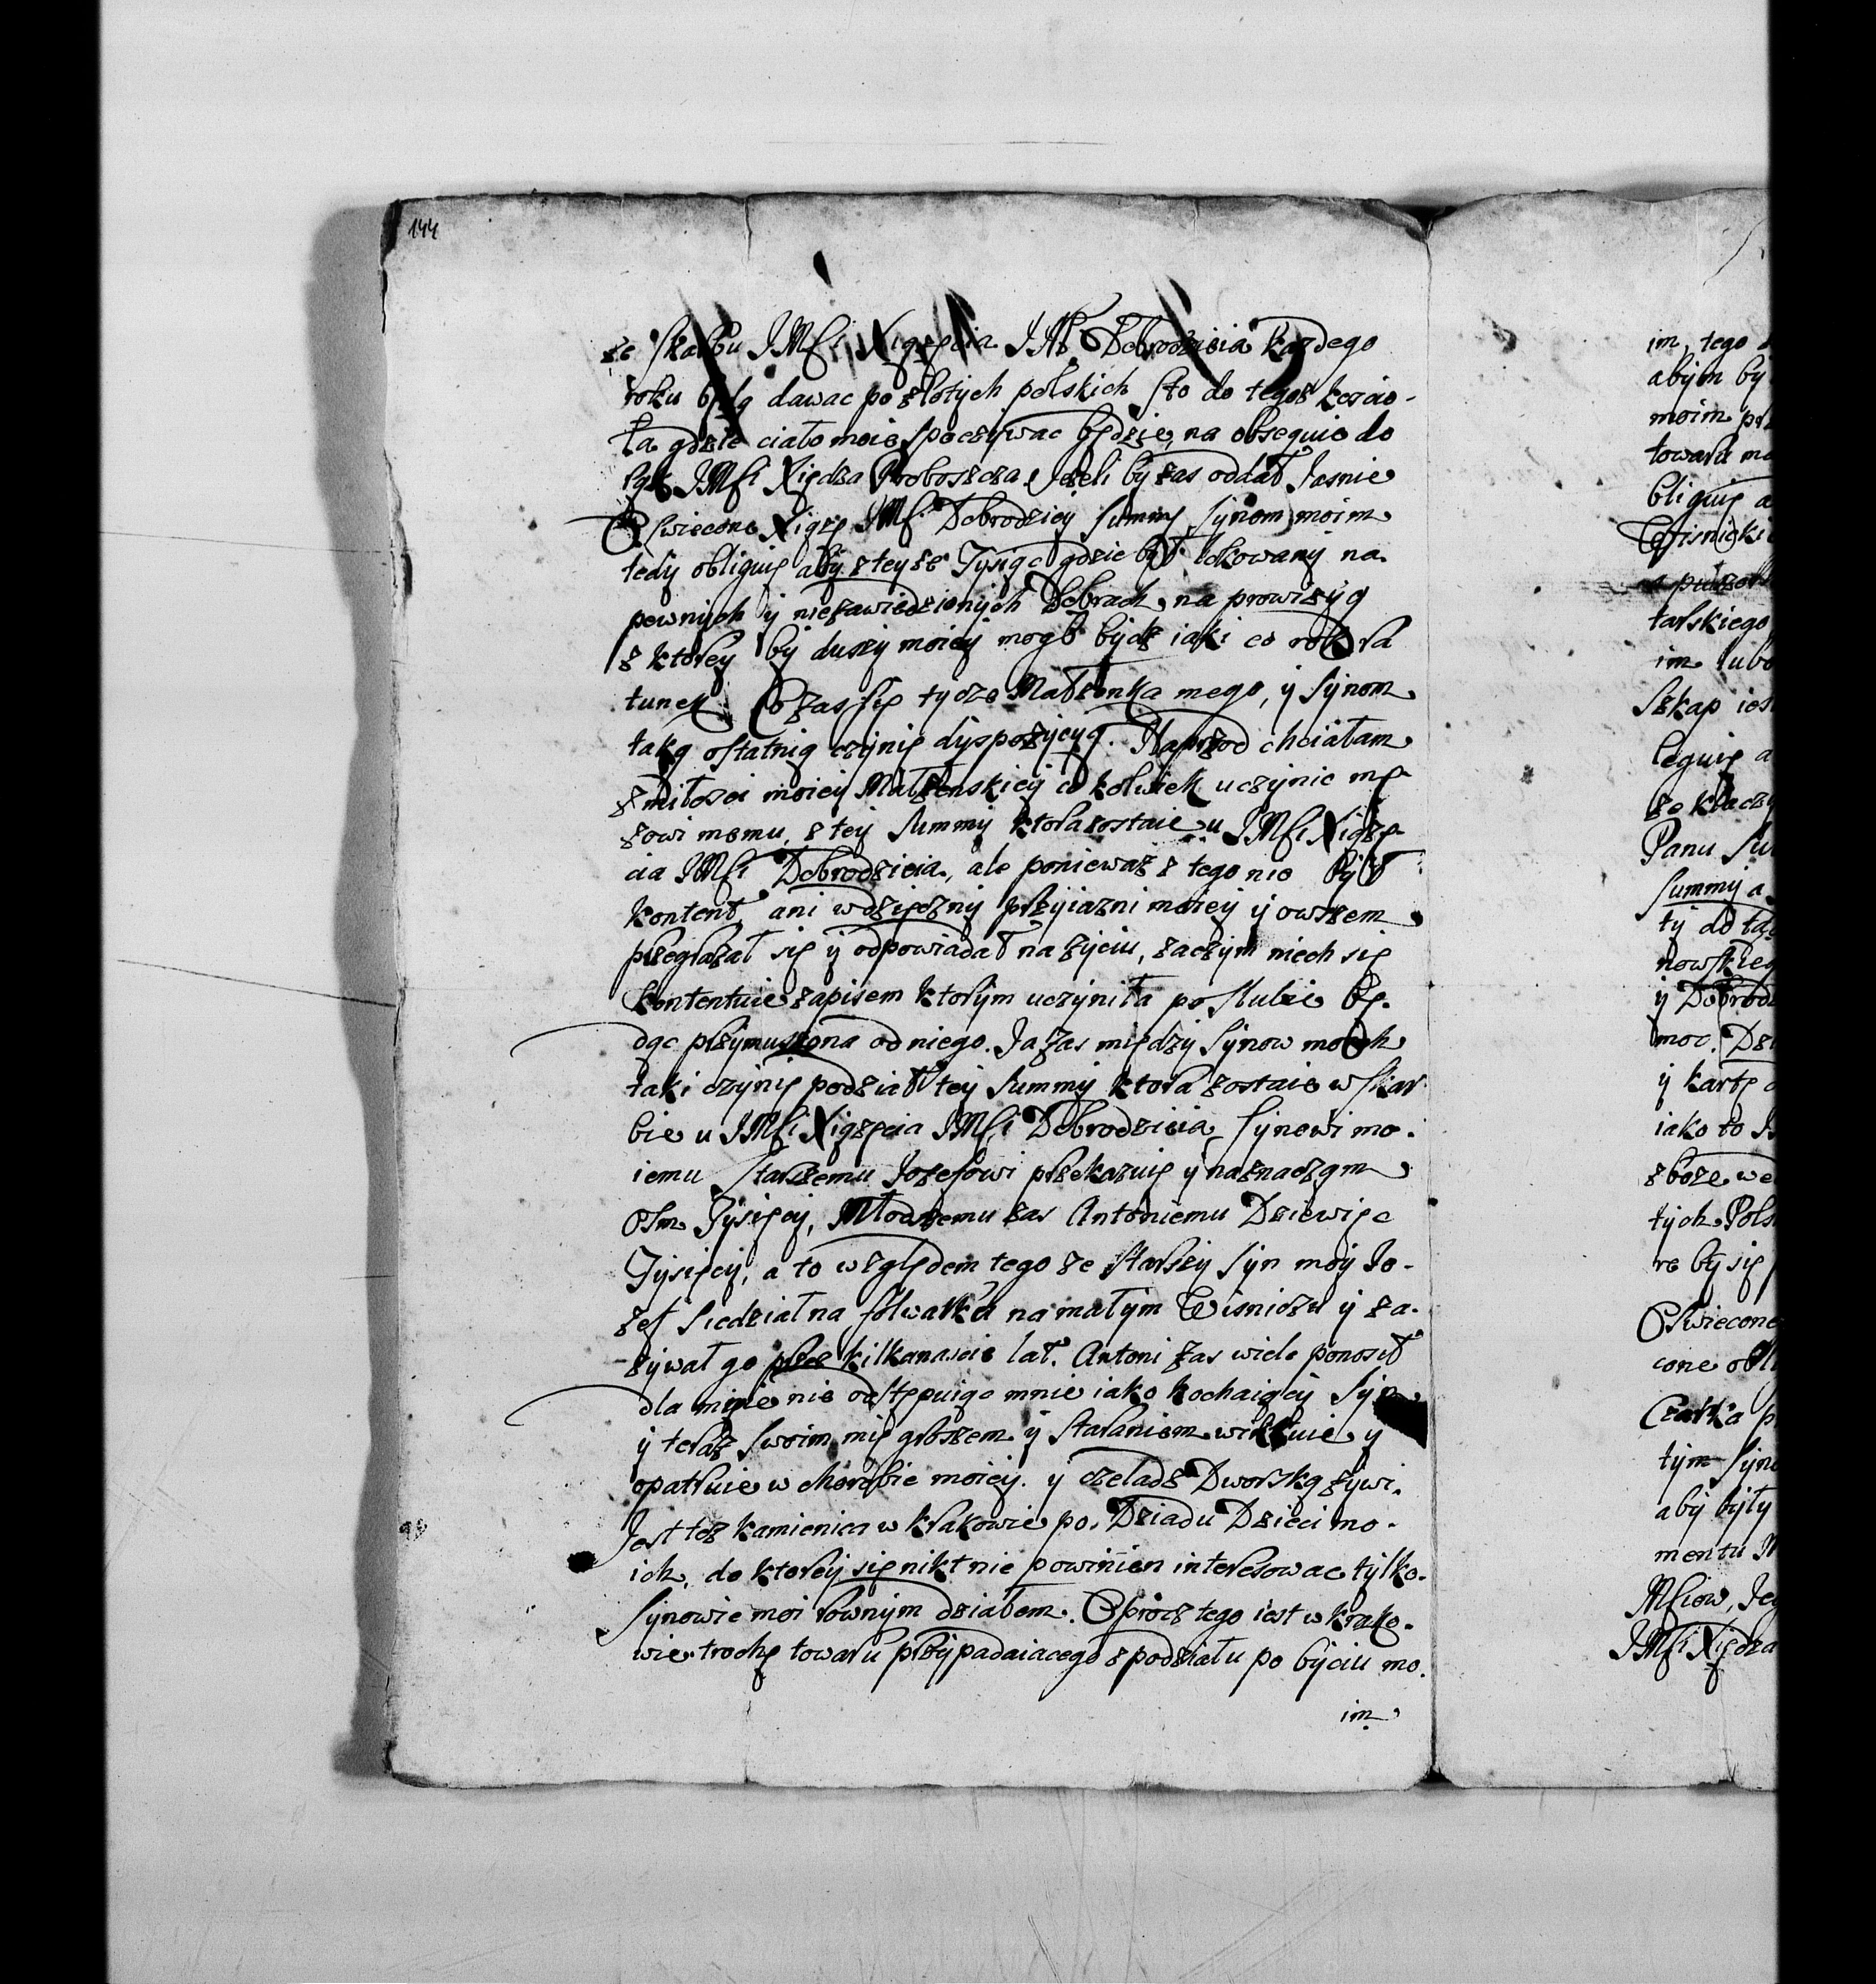 144
ze Skarbu JMści Xiążęcia JMści Dobrodzieia kazdego
roku będą dawac po złotych polskich sto do tegoz koscio-
ła gdzie ciało moie spoczywac będzie, na obsequie do
rąk JMści Xiędza Proboszcza. Jezeli by zas oddał Jasnie
Oswiecone Xiąże JMść Dobrodziey summę Synom moim
tedy obliguię aby z teyże Tysiąc gdzie był lokowany na
pewnych y niezawiedzionych Dobrach, na prowizyą
z ktorey by duszy moiey mogł bydz iaki co rok ra
tunek. Co zas się tycze Małżonka mego, y Synom
taką ostatnią czynię dyspozycyą. Naprzod chciałam
z miłosci moiey Małżenskiey co kolwiek uczynic mę
żowi memu, z tey Summy ktora zostaie u JMści Xiąże-
cia JMści Dobrodzieia, ale poniewaz z tego nie był
kontent, ani wdzięczny przyiazni moiey y owszem
przegrażał się y odpowiadał na życiu, zaczym niech się
kontentuie zapisem ktorym uczyniła po slubie bę-
dąc przymuszona od niego. Ja zas między Synow moich
taki czynię podział tey Summy ktora zostaie w skar
bie u JMści Xiążęcia JMści Dobrodzieia Synowi mo-
iemu Starszemu Jozefowi przekazuię y naznaczam
Osm Tysięcy, Młodszemu zas Antoniemu Dziewięc
Tysięcy, a to względem tego ze starszy syn moy Jo-
zef siedział na folwarku na małym Wisniczu y za-
żywał go przez kilkanascie lat. Antoni zas wiele ponosił
dla mnie nie odstępuiąc mnie iako kochaiący Syn
y teraz swoim mię groszem y staraniem wiktuie y
opatruie w chorobie moiey. y czeladz Dworską żywi.
Jest tez kamienica w Krakowie po Dziadu Dzieci mo-
ich, do ktorey się nikt nie powinien interesowac tylko
Synowie moi rownym działem. Oprocz tego iest w Krako-
wie trochę towaru przypadaiacego z podziału po byciu mo.
im
im, tego
abym by
moim
towaru
bliguię a
Wisnicki
tarskiego
im lubo
Szkap
leguię a
Panu
Summy a
ty do
y Dobrod
moc.
y kartę
iako to
zboze we
tych Pols
re by się
Oswiecone
cone
Czarka
tym Syn
aby były
mentu
JMści Xiędza